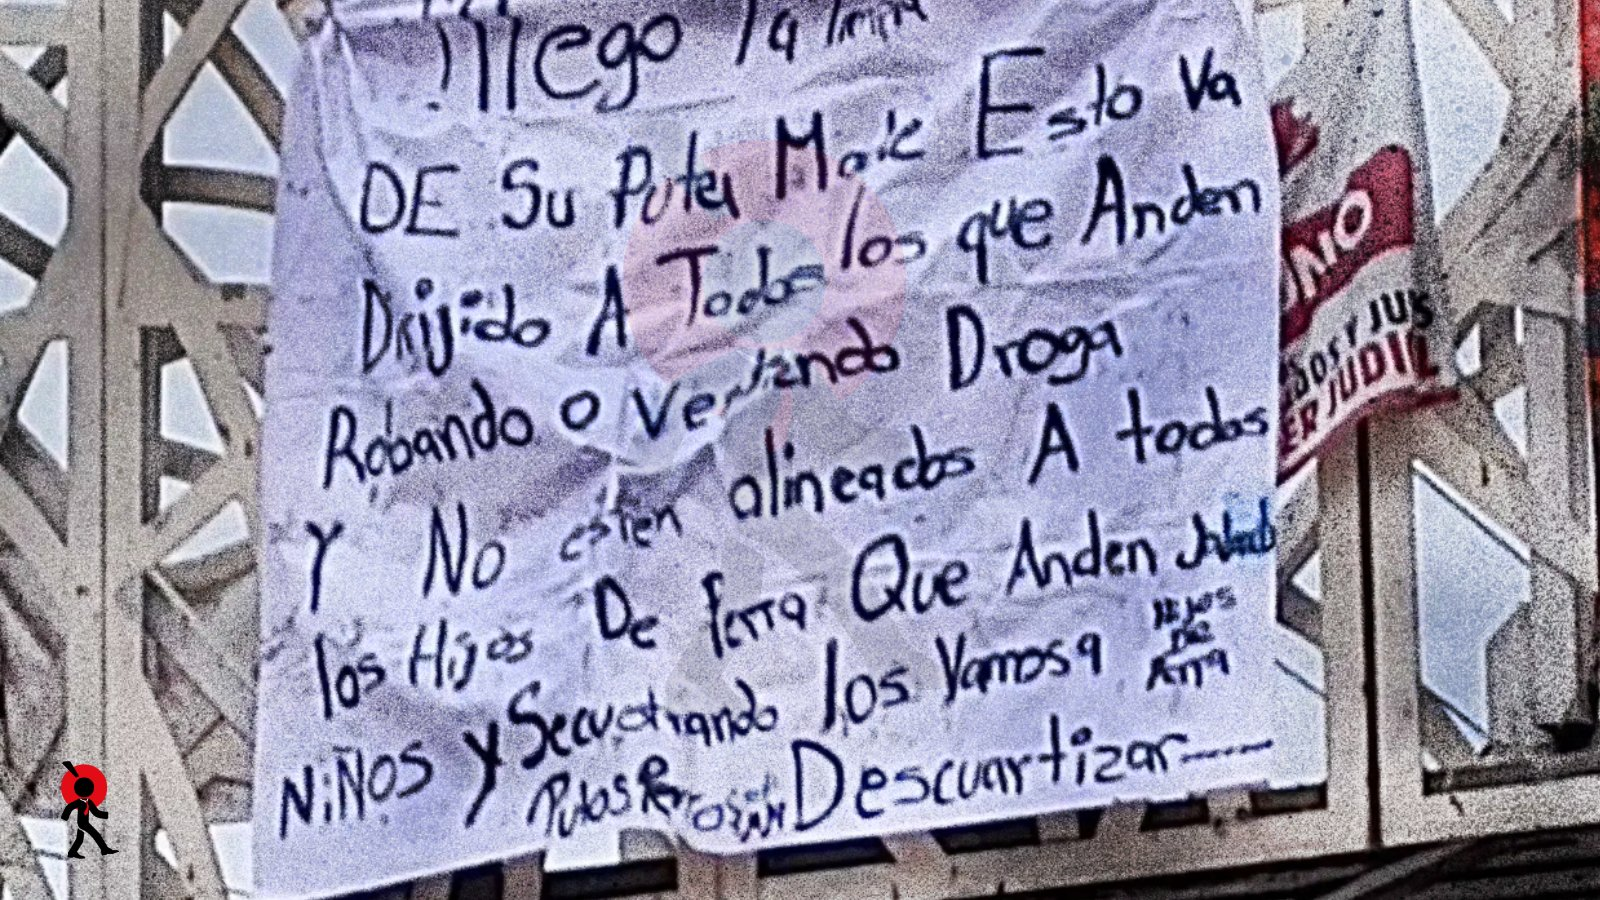 !llego la limpia
DE Su Puta Madre Esto Va
Dirijido A Todos los que Anden
Robando o Vendiendo Droga
Y No esten alineados A todos
los Hijos De Perra Que Anden
NiÑOS y Secuestrando los Vamos a
HIJOS
DE
Perra
Putos Perros Descuartizar----
NO
SOS Y JUS
ER JUDIC